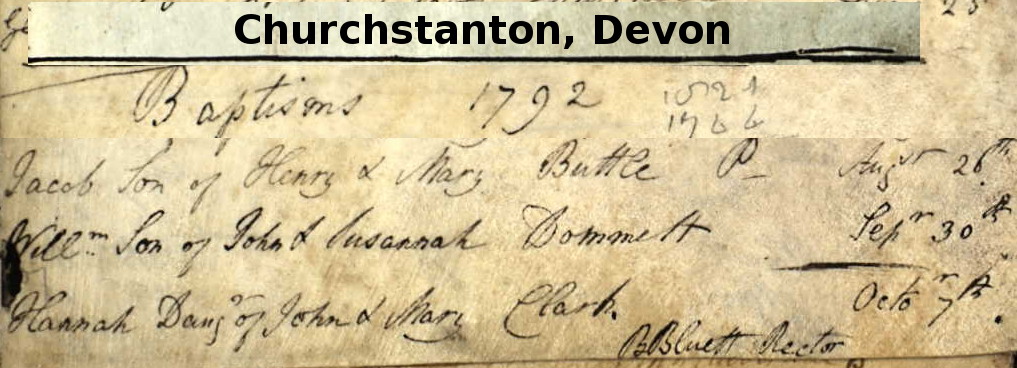 25
Churchstanton, Devon
Baptisms 1792
Jacob Son of Henry & Mary Buttle P Augst 26th
Willm Son of John & Susannah Dommett Sepr 30th
Hannah Daugr of John & Mary Clark. Octor 7th.
BBluett Rector